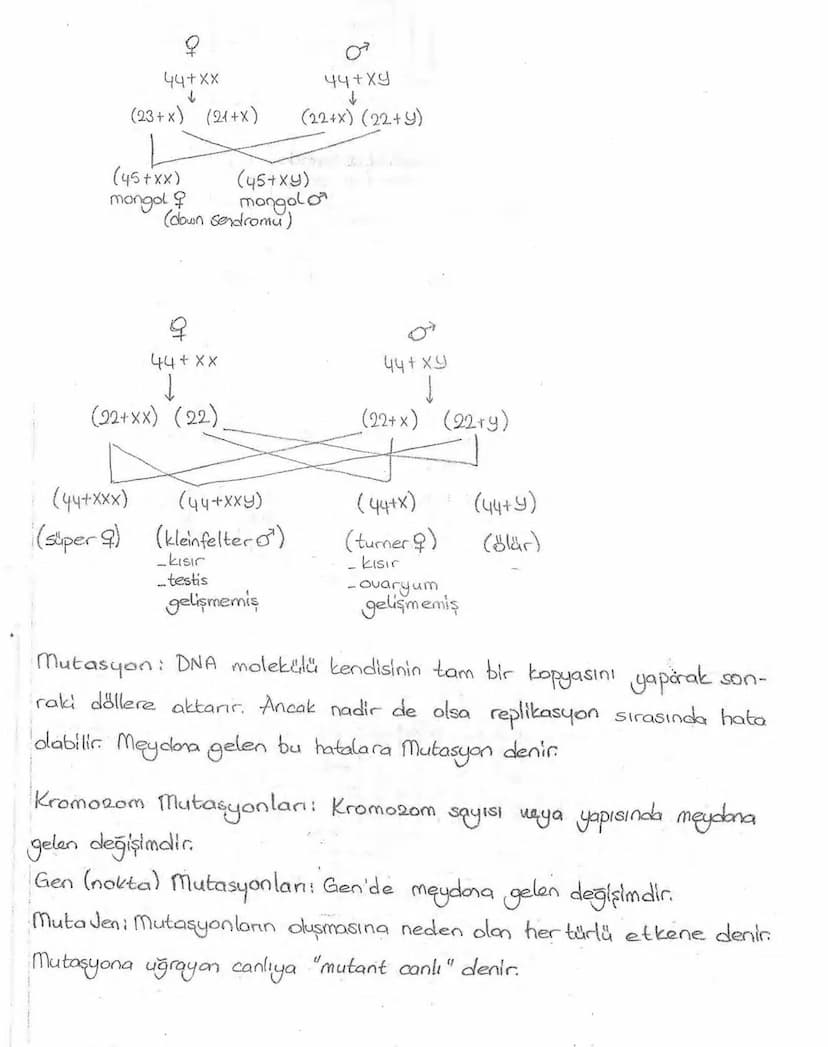 ♀ ♂
44+XX 44+XY
↓ ↓
(23+X) (21+X) (22+X) (22+Y)
(45+XX) (45+XY)
mongol ♀ mongol ♂
(down sendromu)
♀ ♂
44+XX 44+XY
↓ ↓
(22+XX) (22) (22+X) (22+Y)
(44+XXX) (44+XXY) (44+X) (44+Y)
(süper ♀) (kleinfelter ♂) (turner ♀) (ölür)
-kısır -kısır
-testis -ovaryum
gelişmemiş gelişmemiş
Mutasyon: DNA molekülü kendisinin tam bir kopyasını yaparak son-
raki döllere aktarır. Ancak nadir de olsa replikasyon sırasında hata
olabilir. Meydana gelen bu hatalara Mutasyon denir.
Kromozom Mutasyonları: Kromozom sayısı veya yapısında meydana
gelen değişimdir.
Gen (nokta) Mutasyonları: Gen'de meydana gelen değişimdir.
MutaJen: Mutasyonların oluşmasına neden olan her türlü etkene denir.
Mutasyona uğrayan canlıya "mutant canlı" denir.